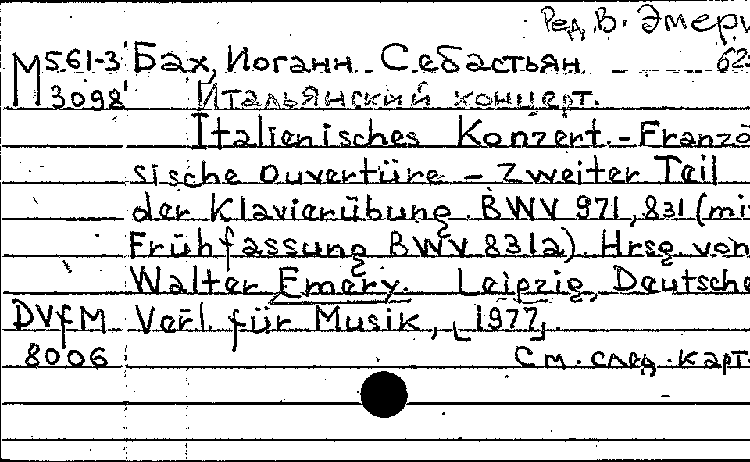 Ред. В. Эмери
М 561-3 Бах, Иоганн Себастьян 62
3098 Итальянский концерт.
Italienisches Konzert. - Franzö
sische Ouvertüre - Zweiter Teil
der Klavierübung. BWV 971, 831 (mi
Frühfassung BWV 831a). Hrsg. von
Walter Emery. Leipzig, Deutsche
DVfM Verl. für Musik, [1977].
8006 См. след. карт